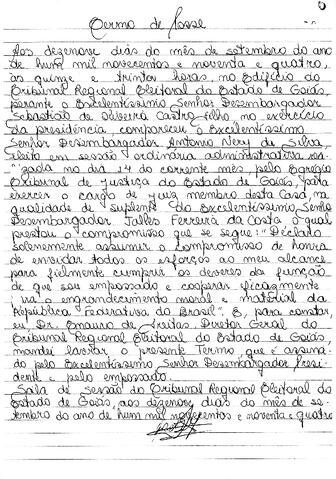 Termo de Posse
Aos dezenove dias do mês de setembro do ano
de hum mil novecentos e noventa e quatro,
às quinze e trinta horas, no Edifício do
Tribunal Regional Eleitoral do Estado de Goiás,
perante o Excelentíssimo Senhor Desembargador
Sebastião de Oliveira Castro Filho no exercício
da presidência, compareceu o Excelentíssimo
Senhor Desembargador Antonio Nery da Silva
eleito em sessão ordinária administrativa rea-
lizada no dia 14 do corrente mês, pelo Egrégio
Tribunal de Justiça do Estado de Goiás, para
exercer o cargo de juiz membro desta Casa, na
qualidade de suplente do Excelentíssimo Senhor
Desembargador Jalles Ferreira da Costa o qual
prestou o compromisso que se segue: "Declaro
solenemente assumir o compromisso de honra,
de envidar todos os esforços ao meu alcance
para fielmente cumprir os deveres da função
de que sou empossado e cooperar eficazmente
para o engrandecimento moral e material da
República Federativa do Brasil". E, para constar,
eu, Dr. de Freitas, Diretor Geral do
Tribunal Regional Eleitoral do Estado de Goiás,
mandei lavrar o presente Termo, que é assina-
do pelo Excelentíssimo Senhor Desembargador Presi-
dente e pelo empossado.
Sala de sessão do Tribunal Regional Eleitoral do
Estado de Goiás, aos dezenove dias do mês de se-
tembro do ano de hum mil novecentos e noventa e quatro